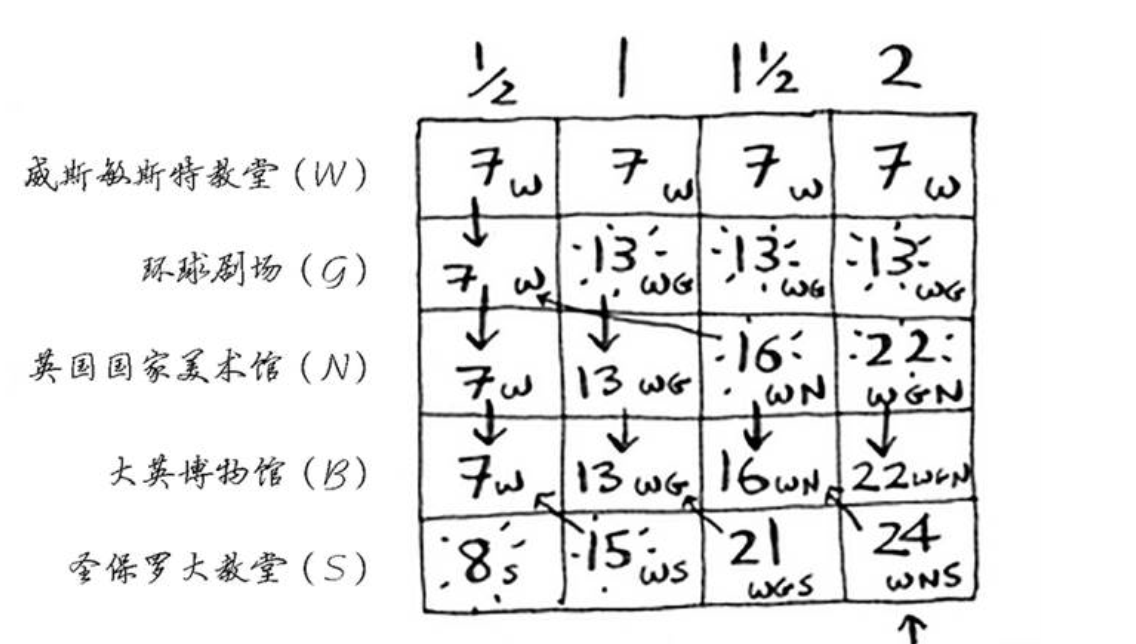 1/2 1 1 1/2 2
威斯敏斯特教堂(W) 7 W 7 W 7 W 7 W
环球剧场(G) 7 W 13 WG 13 WG 13 WG
英国国家美术馆(N) 7 W 13 WG 16 WN 22 WGN
大英博物馆(B) 7 W 13 WG 16 WN 22 WGN
圣保罗大教堂(S) 8 S 15 WS 21 WGS 24 WNS